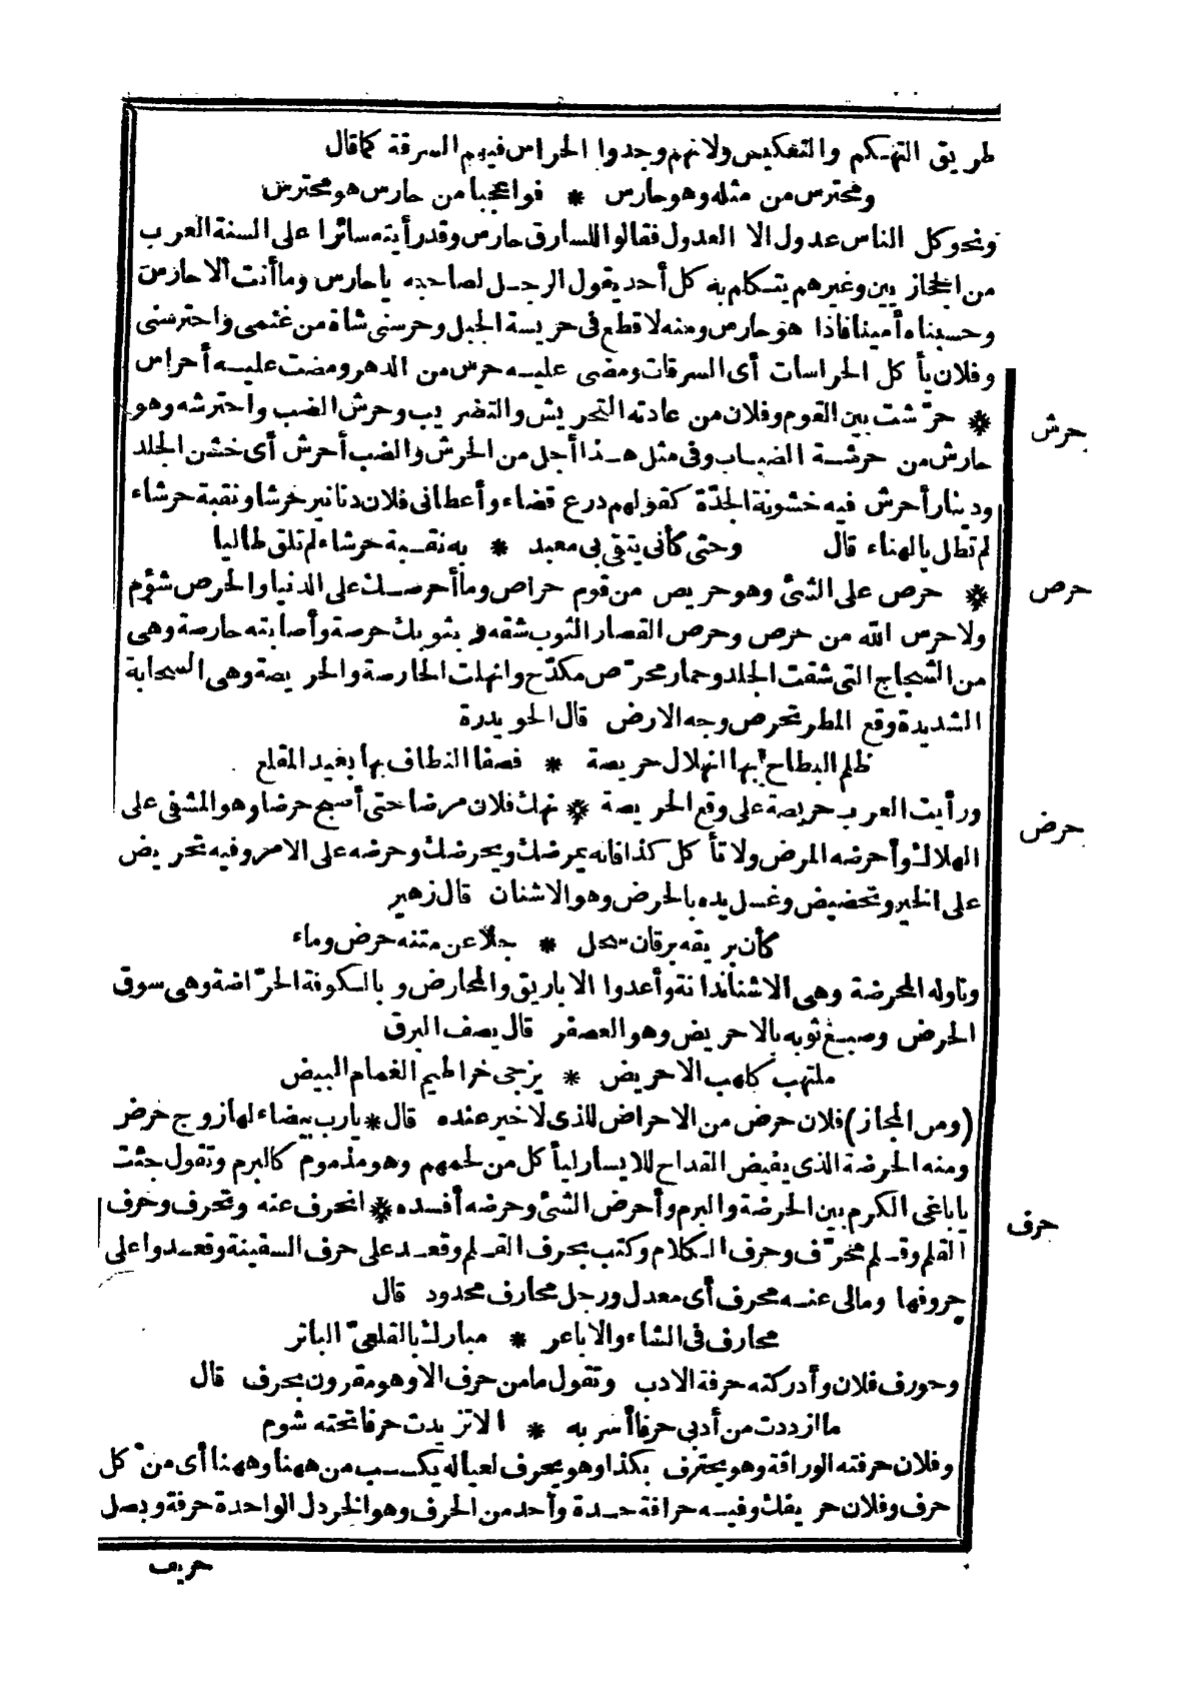 طريق التهكم والتعكيس ولانهم وجدوا الحراس فيهم السرقة كما قال
ومحترس من مثله وهو حارس * فواعجبا من حارس هو محترس
ونحو كل الناس عدول الا العدول فقالوا للسارق حارس وقد رأيته سائرا على السنة العرب
من الحجازيين وغيرهم يتكلم به كل أحد يقول الرجل لصاحبه ياحارس وما أنت الاحارس
وحسبناه أمينا فاذا هو حارس ومنه لا قطع فى حريسة الجبل وحرسنى شاة من غنمى واحترسنى
وفلان يأكل الحراسات أى السرقات ومضى عليه حرس من الدهر ومضت عليه أحراس
حرش
* حرّشت بين القوم وفلان من عادته التحريش والتضريب وحرش الضب واحترشه وهو
حارش من حرشة الضباب وفى مثل هذا أجل من الحرش والضب أحرش أى خشن الجلد
ودينار أحرش فيه خشونة الجدّة كقولهم درع قضاء وأعطانى فلان دنانير حرشا ونقبة حرشاء
لم تطل بالهناء قال وحتى كأنى يتقى بى معبد * به نقبة حرشاء لم تلق طاليا
حرص
* حرص على الشئ وهو حريص من قوم حراص وما أحرصك على الدنيا والحرص شؤم
ولا حرس الله من حرص وحرص القصار الثوب شقه وبثوبك حرصة وأصابته حارصة وهى
من الشجاج التى شقت الجلد وحمار محرّص مكدّح وانهلت الحارصة والحريصة وهى السحابة
الشديدة وقع المطر تحرص وجه الارض قال الحويدرة
ظلم البطاح بها انهلال حريصة * فصفا النطاف بها بعيد المقلع
حرض
ورأيت العرب حريصة على وقع الحريصة * نهك فلان مرضا حتى أصبح حرضا وهو المشفى على
الهلاك وأحرضه المرض ولا تأكل كذا فانه يمرضك ويحرضك وحرضه على الامر وفيه تحريض
على الخير وتحضيض وغسل يده بالحرض وهو الاشنان قال زهير
كأن بريقه برقان سحل * جلا عن متنه حرض وماء
وناوله المحرضة وهى الاشناندانة وأعدوا الاباريق والمحارض وبالكوفة الحرّاضة وهى سوق
الحرض وصبغ ثوبه بالاحريض وهو العصفر قال يصف البرق
ملتهب كلهب الاحريض * يزجى خراطيم الغمام البيض
(ومن المجاز) فلان حرض من الاحراض للذى لاخير عنده قال * يارب بيضاء لها زوج حرض
ومنه الحرضة الذى يفيض القداح للايسار ليأكل من لحمهم وهو مذموم كالبرم وتقول جئت
حرف
ياباغى الكرم بين الحرضة والبرم وأحرض الشئ وحرضه أفسده * انحرف عنه وتحرف وحرف
القلم وقلم محرّف وحرف الكلام وكتب بحرف القلم وقعد على حرف السفينة وقعدوا على
حروفها ومالى عنه محرف أى معدل ورجل محارف محدود قال
محارف فى الشاء والاباعر * مبارك بالقلعىّ الباتر
وحورف فلان وأدركته حرفة الادب وتقول مامن حرف الا وهو مقرون بحرف قال
ما ازددت من أدبى حرفا أسر به * الا تزيدت حرفا تحته شوم
وفلان حرفته الوراقة وهو يحترف بكذا وهو يحرف لعياله يكسب من ههنا وههنا أى من كل
حرف وفلان حريفك وفيه حرافة حدة وأحد من الحرف وهو الخردل الواحدة حرفة وبصل
حريف